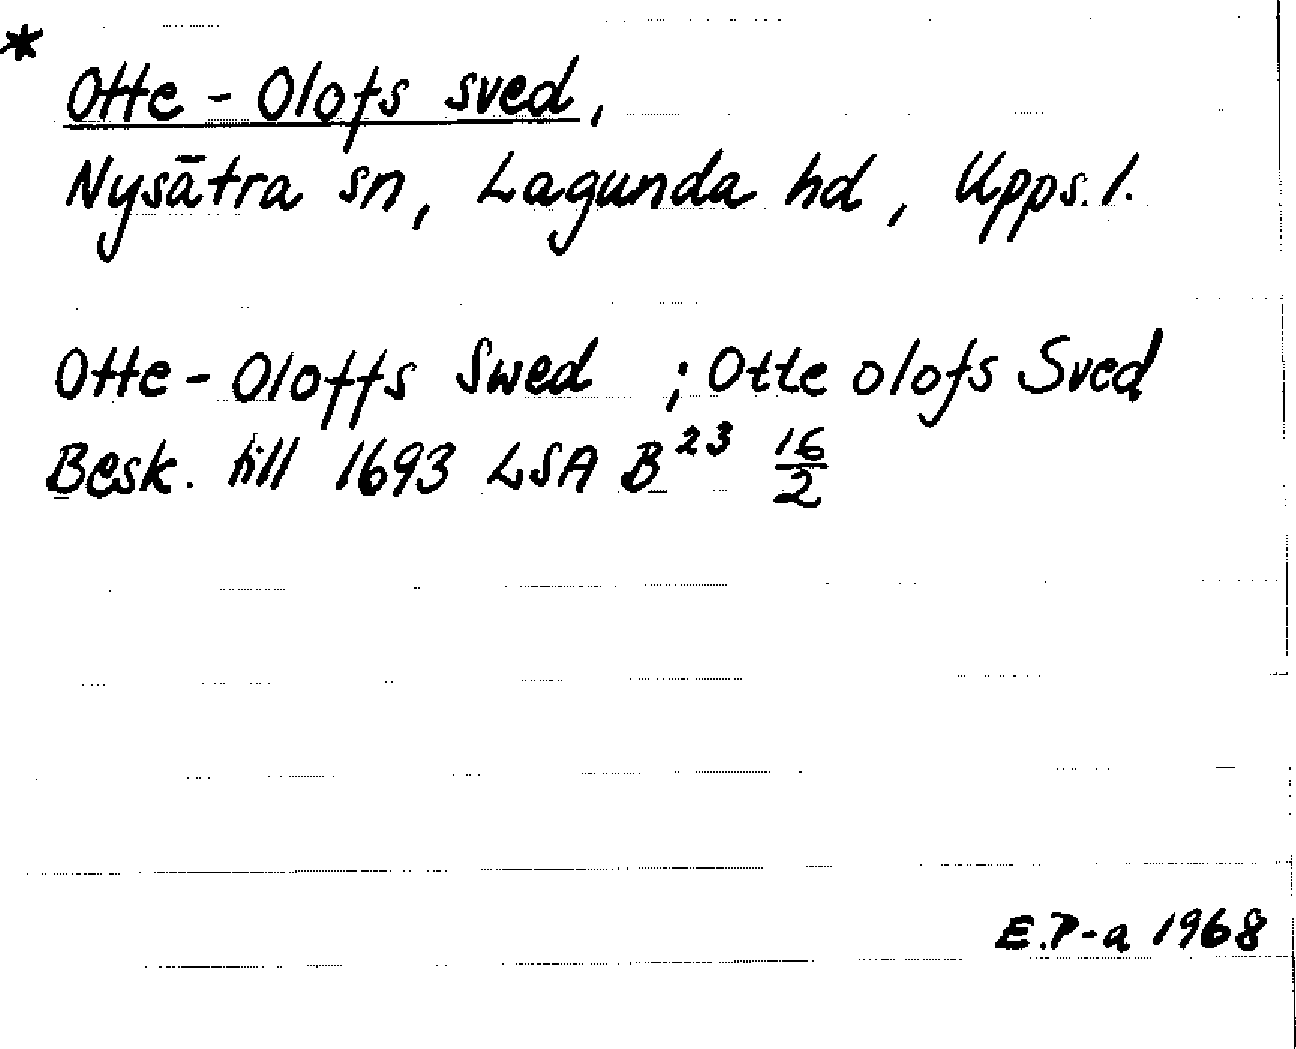 * Otte-Olofs sved,
Nysätra sn, Lagunda hd, Upps. l.
Otte-Oloffs Swed ; Otte olofs Sved
Besk. till 1693 LSA B²³ 16/2
E.P-a 1968